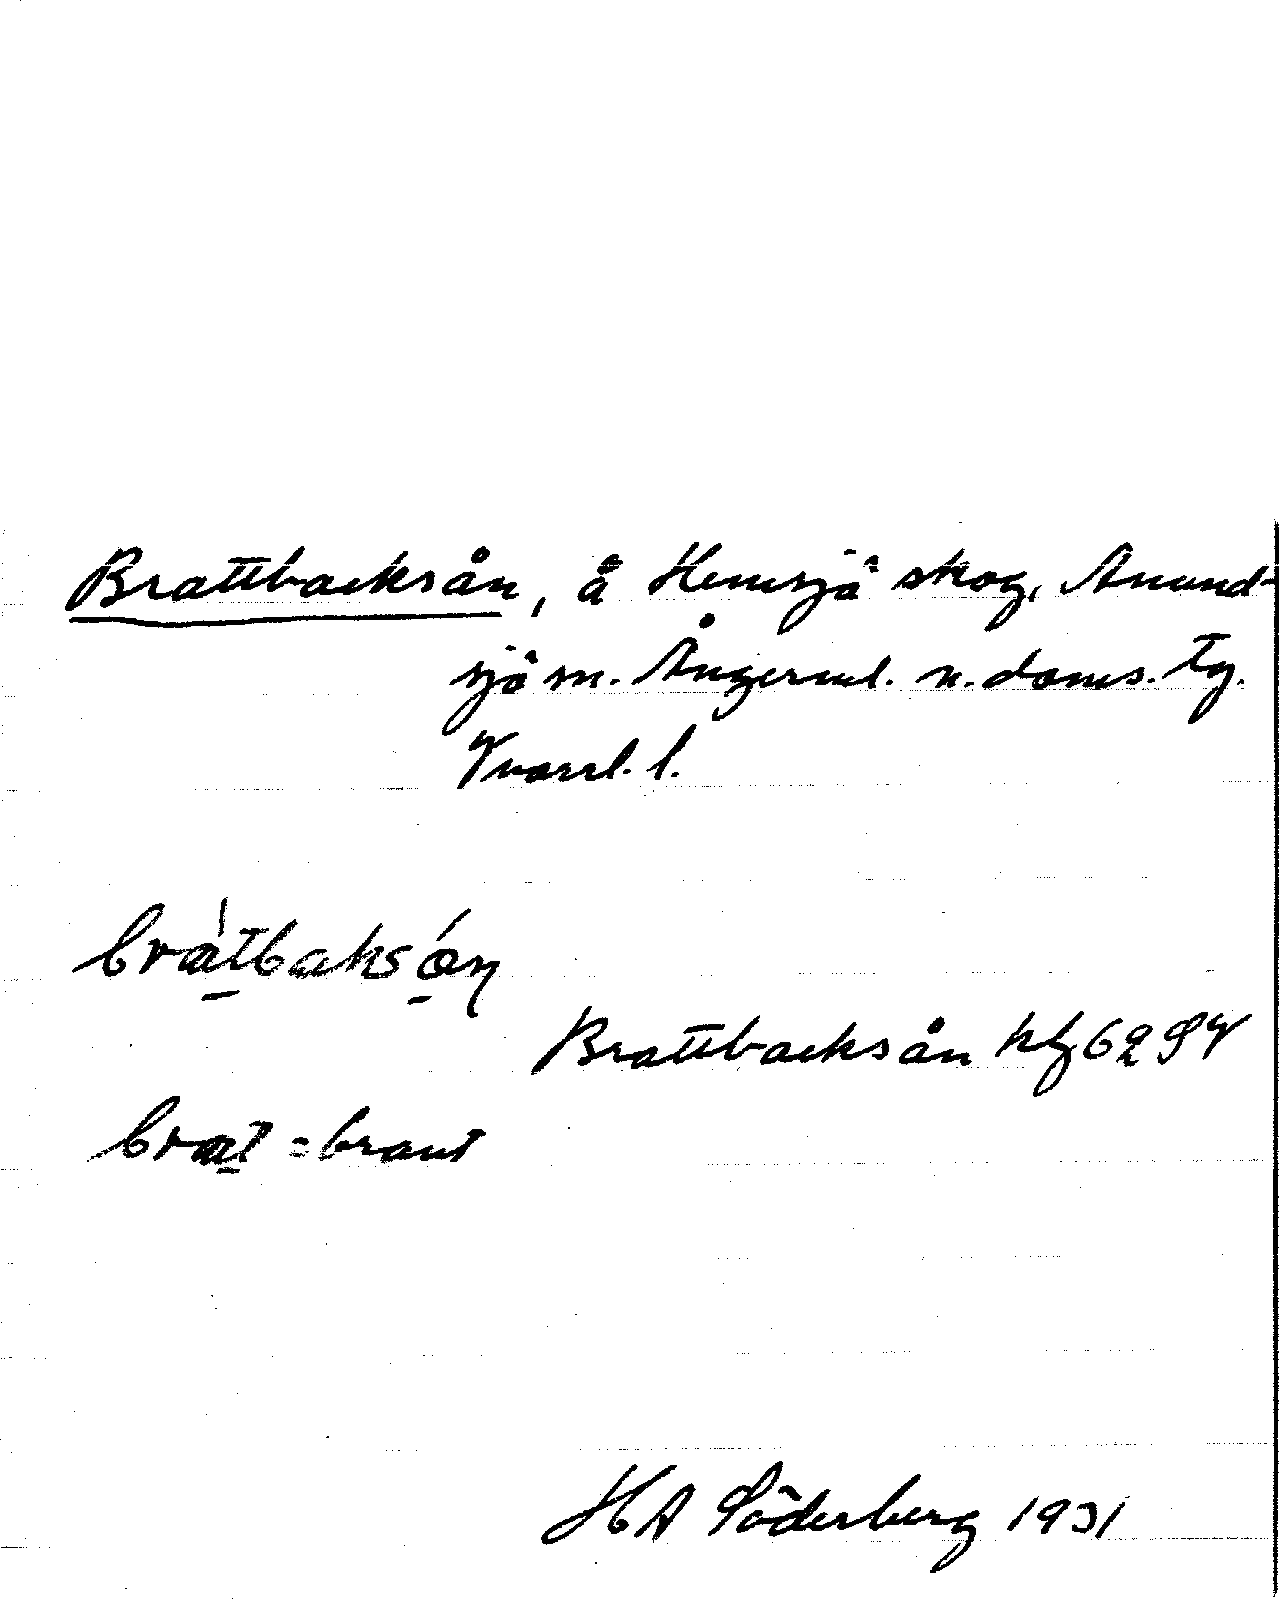 Brattbacksån, å Hemsjö skog, Anund-
sjö sn. Ångerml. n. doms. tg.
Västernorrl. l.
bràtbaksón
Brattbacksån kbl 62 SV
brat = brant
HA Söderberg 1931